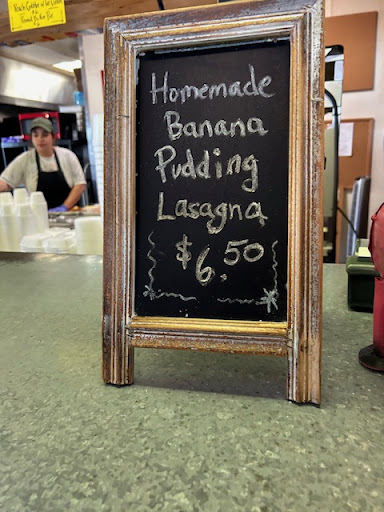 Homemade
Banana
Pudding
Lasagna
$6.50